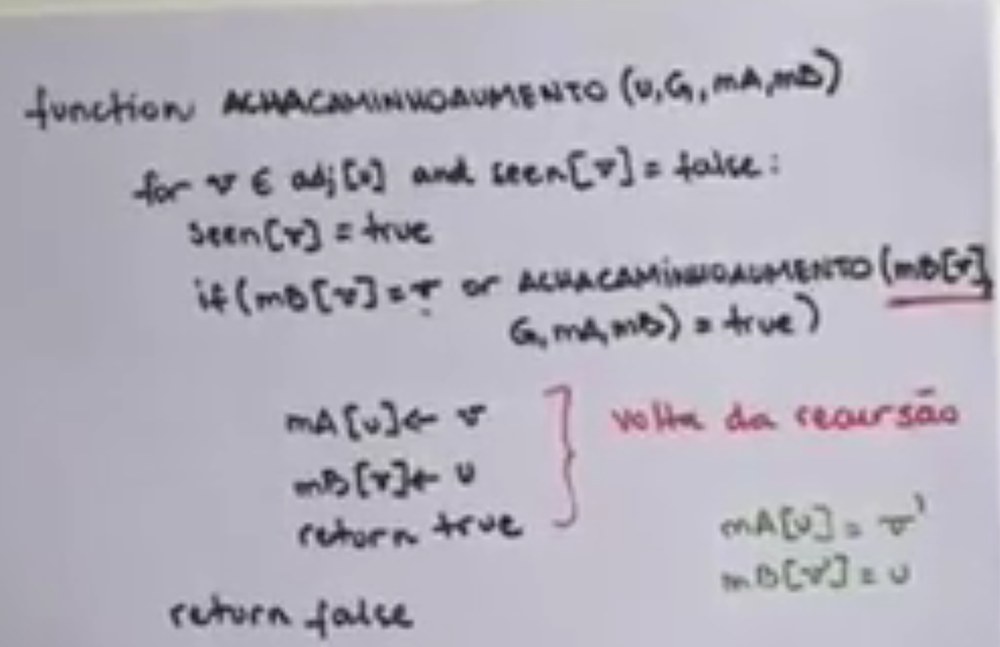 function ACHACAMINHOAUMENTO (u, G, mA, mB)
for v ∈ adj[u] and seen[v] = false:
seen[v] = true
if (mB[v] = v or ACHACAMINHOAUMENTO (mB[v],
G, mA, mB) = true)
mA[u] ← v
mB[v] ← u
return true
volta da recursão
mA[u] = v'
mB[v'] = u
return false